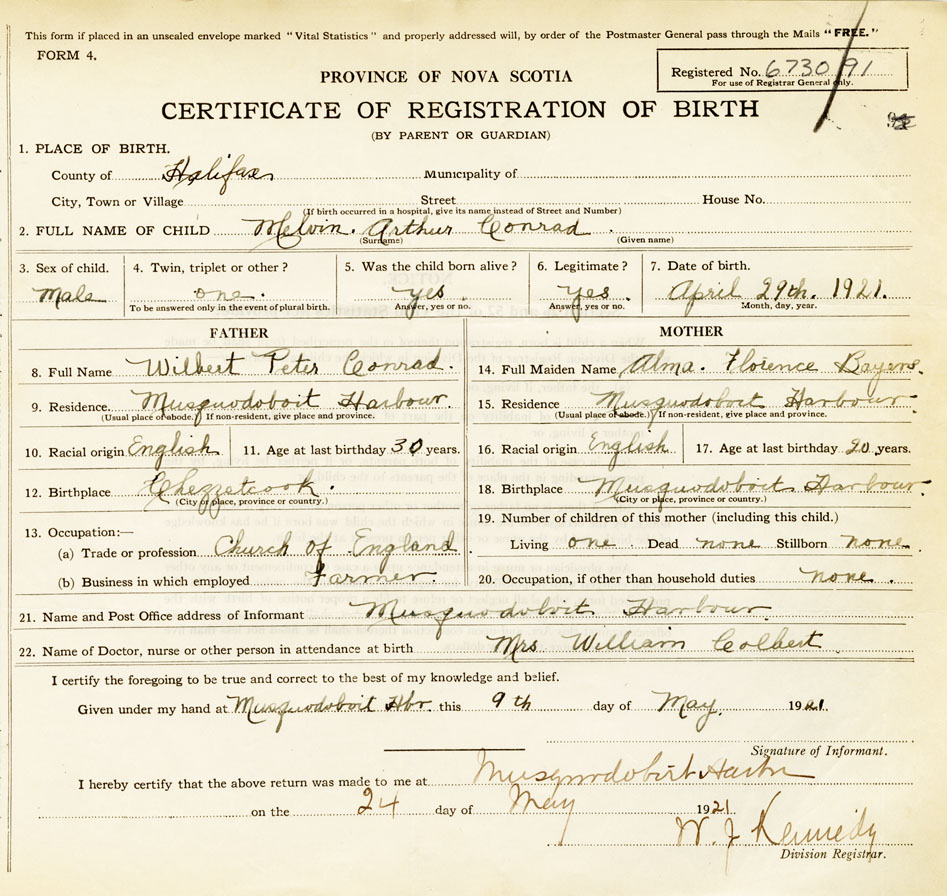 This form if placed in an unsealed envelope marked "Vital Statistics" and properly addressed will, by order of the Postmaster General pass through the Mails "FREE."
FORM 4.
Registered No. 6730/91
For use of Registrar General only.
PROVINCE OF NOVA SCOTIA
CERTIFICATE OF REGISTRATION OF BIRTH
(BY PARENT OR GUARDIAN)
1. PLACE OF BIRTH.
County of Halifax Municipality of
City, Town or Village Street House No.
(If birth occurred in a hospital, give its name instead of Street and Number)
2. FULL NAME OF CHILD Melvin. Arthur Conrad.
(Surname) (Given name)
3. Sex of child. 4. Twin, triplet or other? 5. Was the child born alive? 6. Legitimate? 7. Date of birth.
Male one. yes. yes. April 29th. 1921.
To be answered only in the event of plural birth. Answer, yes or no. Answer, yes or no. Month, day, year.
FATHER MOTHER
8. Full Name Wilbert Peter Conrad. 14. Full Maiden Name Alma. Florence Bayers.
9. Residence. Musquodoboit Harbour. 15. Residence Musquodoboit Harbour.
(Usual place of abode.) If non-resident, give place and province. (Usual place of abode.) If non-resident, give place and province.
10. Racial origin English 11. Age at last birthday 30 years. 16. Racial origin English 17. Age at last birthday 20 years.
12. Birthplace Chezzetcook. 18. Birthplace Musquodoboit Harbour.
(City or place, province or country.) (City or place, province or country.)
19. Number of children of this mother (including this child.)
13. Occupation:—
(a) Trade or profession Church of England. Living one. Dead none Stillborn none.
(b) Business in which employed Farmer. 20. Occupation, if other than household duties none.
21. Name and Post Office address of Informant Musquodoboit Harbour
22. Name of Doctor, nurse or other person in attendance at birth Mrs William Colbert
I certify the foregoing to be true and correct to the best of my knowledge and belief.
Given under my hand at Musquodoboit Hbr. this 9th day of May. 1921.
Signature of Informant.
I hereby certify that the above return was made to me at Musquodobirt Harbr
on the 24 day of May 1921
W. J Kennedy
Division Registrar.